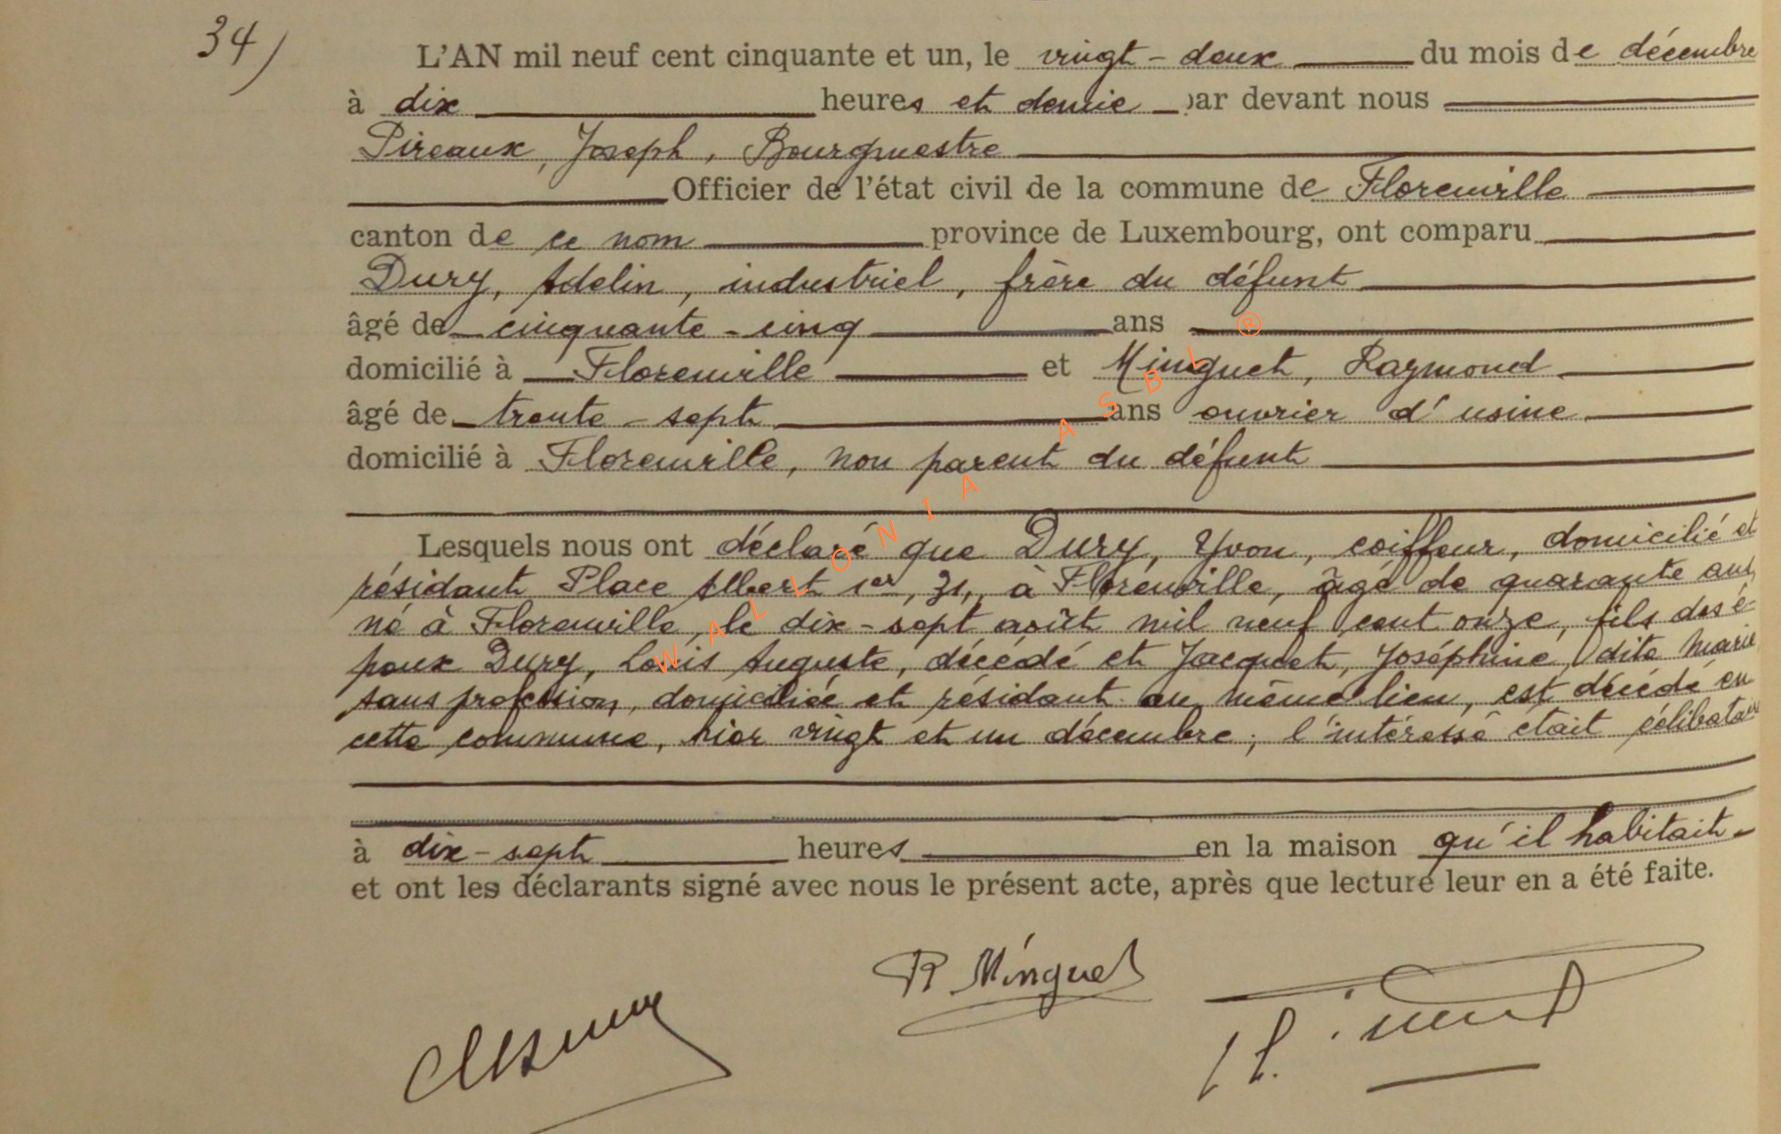 34)
L'AN mil neuf cent cinquante et un, le vingt-deux du mois de décembre
à dix heures et demie par devant nous
Pireaux, Joseph, Bourgmestre
Officier de l'état civil de la commune de Florenville
canton de ce nom province de Luxembourg, ont comparu
Dury, Adelin, industriel, frère du défunt
âgé de cinquante-cinq ans
domicilié à Florenville et Minguet, Raymond
âgé de trente-sept ans ouvrier d'usine
domicilié à Florenville, non parent du défunt
Lesquels nous ont déclaré que Dury, Yvon, coiffeur, domicilié et
résidant Place Albert 1er, 31, à Florenville, âgé de quarante ans
né à Florenville, le dix-sept août mil neuf cent onze, fils des é
poux Dury, Louis Auguste, décédé et Jacquet, Joséphine, dite Marie
sans profession, domiciliée et résidant au même lieu, est décédé en
cette commune, hier vingt et un décembre; l'intéressé était célibataire
à dix-sept heures en la maison qu'il habitait-
et ont les déclarants signé avec nous le présent acte, après que lecture leur en a été faite.
R Minguet
WALLONIA ASBL ®